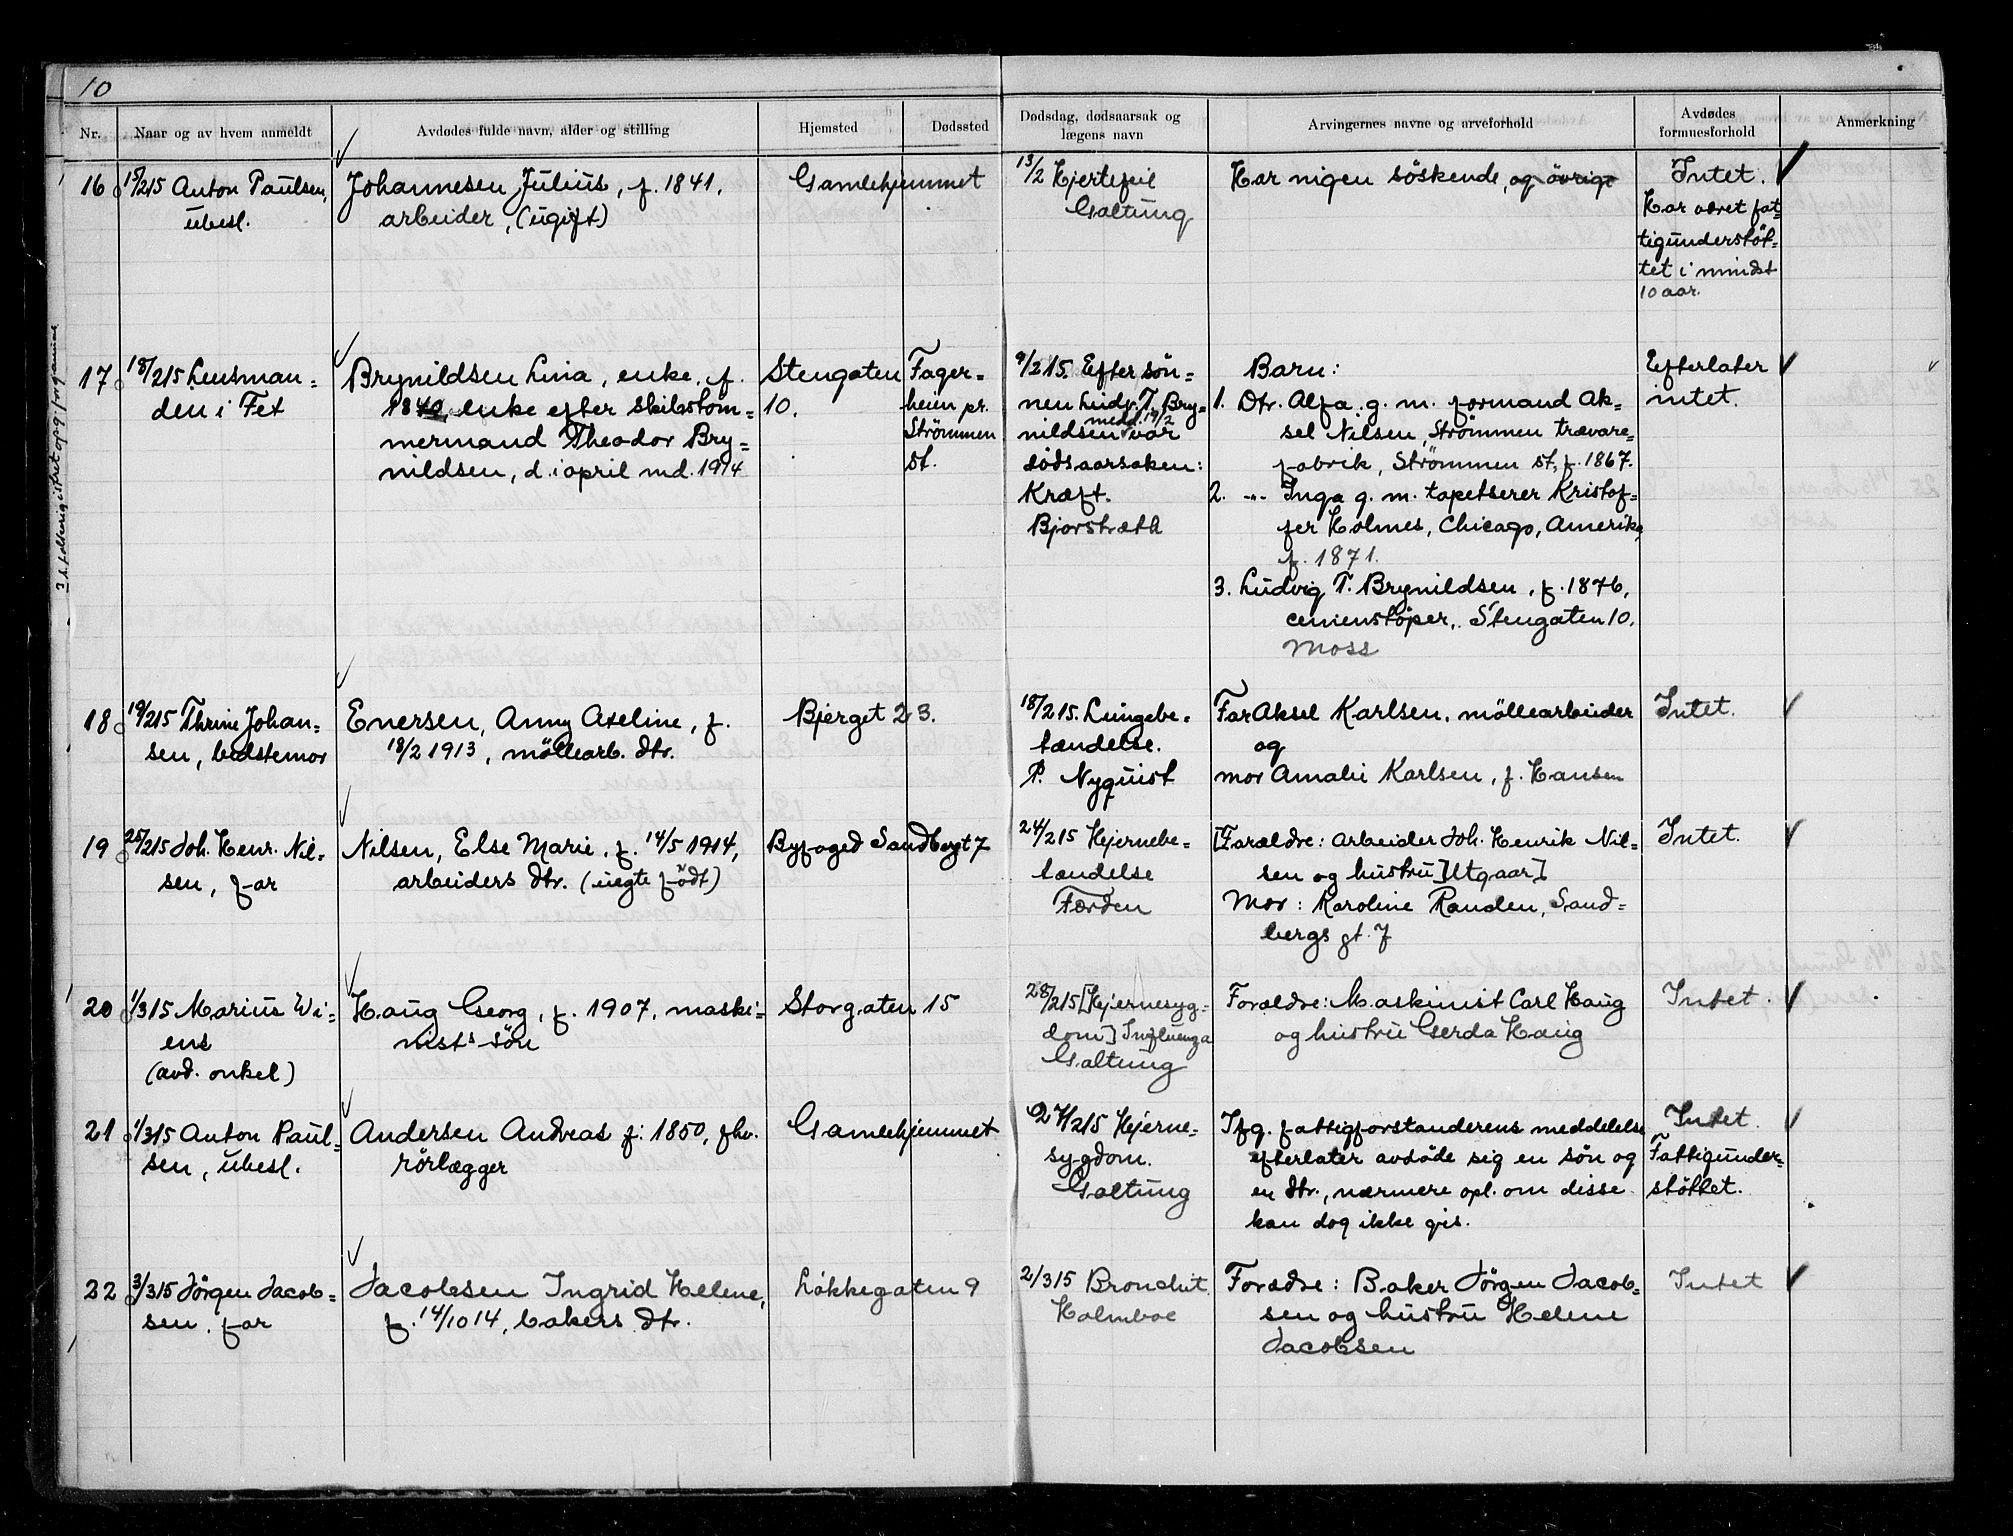 10
Nr.
Naar og av hvem anmeldt
Avdødes fulde navn, alder og stilling
Hjemsted
Dødssted
Dødsdag, dødsaarsak og
lægens navn
Arvingernes navne og arveforhold
Avdødes
formuesforhold
Anmerkning
16
15/2 15 Anton Paulsen,
ubesl.
Johannesen Julius, f. 1841,
arbeider, (ugift)
Gamlehjemmet
13/2 Hjertefeil
Galtung
Har nigen söskende, og övrige
Intet.
Har været fat=
tigunderstöt=
tet i mindst
10 aar.
17
18/2 15 Lensman=
den i Fet
Brynildsen Lina, enke, f.
1840 enke efter skibstöm=
mermand Theodor Bry=
nildsen, d. i april md. 1914
Stengaten
10.
Fager=
heim pr.
Strömmen
st.
9/2 15. Efter sön=
nen Ludv. T. Bry=
medd. 19/2
nildsen var
dödsaarsaken:
Kræft.
Bjorstræth
Barn:
1. Dtr. Alfa g. m. formand Ak=
sel Nilsen, Strömmen trævare=
fabrik, Strömmen st, f. 1867.
2. -"- Inga g. m. tapetserer Kristof=
fer Holmes, Chicago, Amerika,
f. 1871.
3. Ludvig T. Brynildsen, f. 1876,
cementstöper, Stengaten 10.
Moss
Efterlater
intet.
18
19/2 15 Thrine Johan=
sen, bedstemor
Enersen, Anny Axeline, f.
18/2 1913, möllearb. dtr.
Bjerget 23.
18/2 15. Lungebe=
tændelse.
P. Nyquist
Far Aksel Karlsen, möllearbeider
og
mor Amalie Karlsen, f. Hansen
Intet.
19
25/2 15 Joh. Henr. Nil=
sen, far
Nilsen, Else Marie, f. 14/5 1914,
arbeiders dtr. (uegte födt)
Byfoged Sandbergt 7
24/2 15 Hjernebe=
tændelse
Færden
[Forældre: Arbeider Joh. Henrik Nil=
sen og hustru] Utgaar].
Mor: Karoline Randen, Sand=
bergs gt. 7
Intet.
20
1/3 15 Marius Wi=
ens
(avd. onkel)
Haug Georg, f. 1907, maski=
nists sön
Storgaten 15
28/2 15 [Hjernesyg=
dom] Influenza
Galtung
Forældre: Maskinist Carl Haug
og hustru Gerda Haug
Intet.
21
1/3 15 Anton Paul=
sen, ubesl.
Andersen Andreas f. 1850, fhv.
rörlægger
Gamlehjemmet
27/2 15 Hjerne=
sygdom.
Galtung
Ifg. fattigforstanderens meddelelse
efterlater avdöde sig en sön og
en dtr., nærmere opl. om disse
kan dog ikke gis.
Intet.
Fattigunder=
stöttet.
22
3/3 15 Jörgen Jacob=
sen, far
Jacobsen Ingrid Helene,
f. 14/10 14, bakers dtr.
Lökkegaten 9
2/3 15 Bronchit
Holmboe
Forædre: Baker Jörgen Jacob=
sen og hustru Helene
Jacobsen
Intet